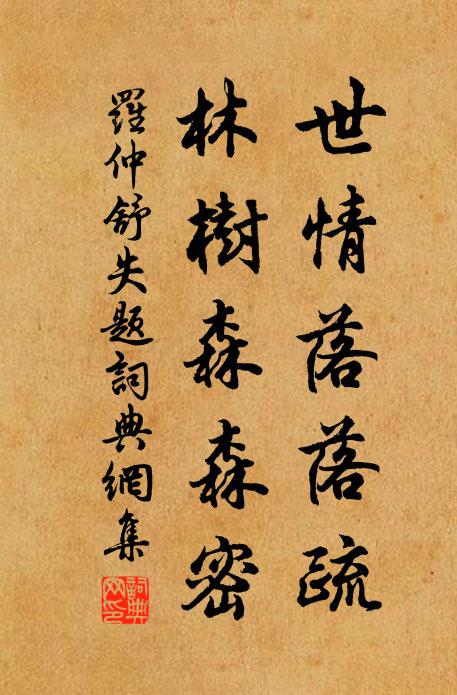 世情落落疏
林樹森森密
羅仲舒失題詞典網集
詞典網印